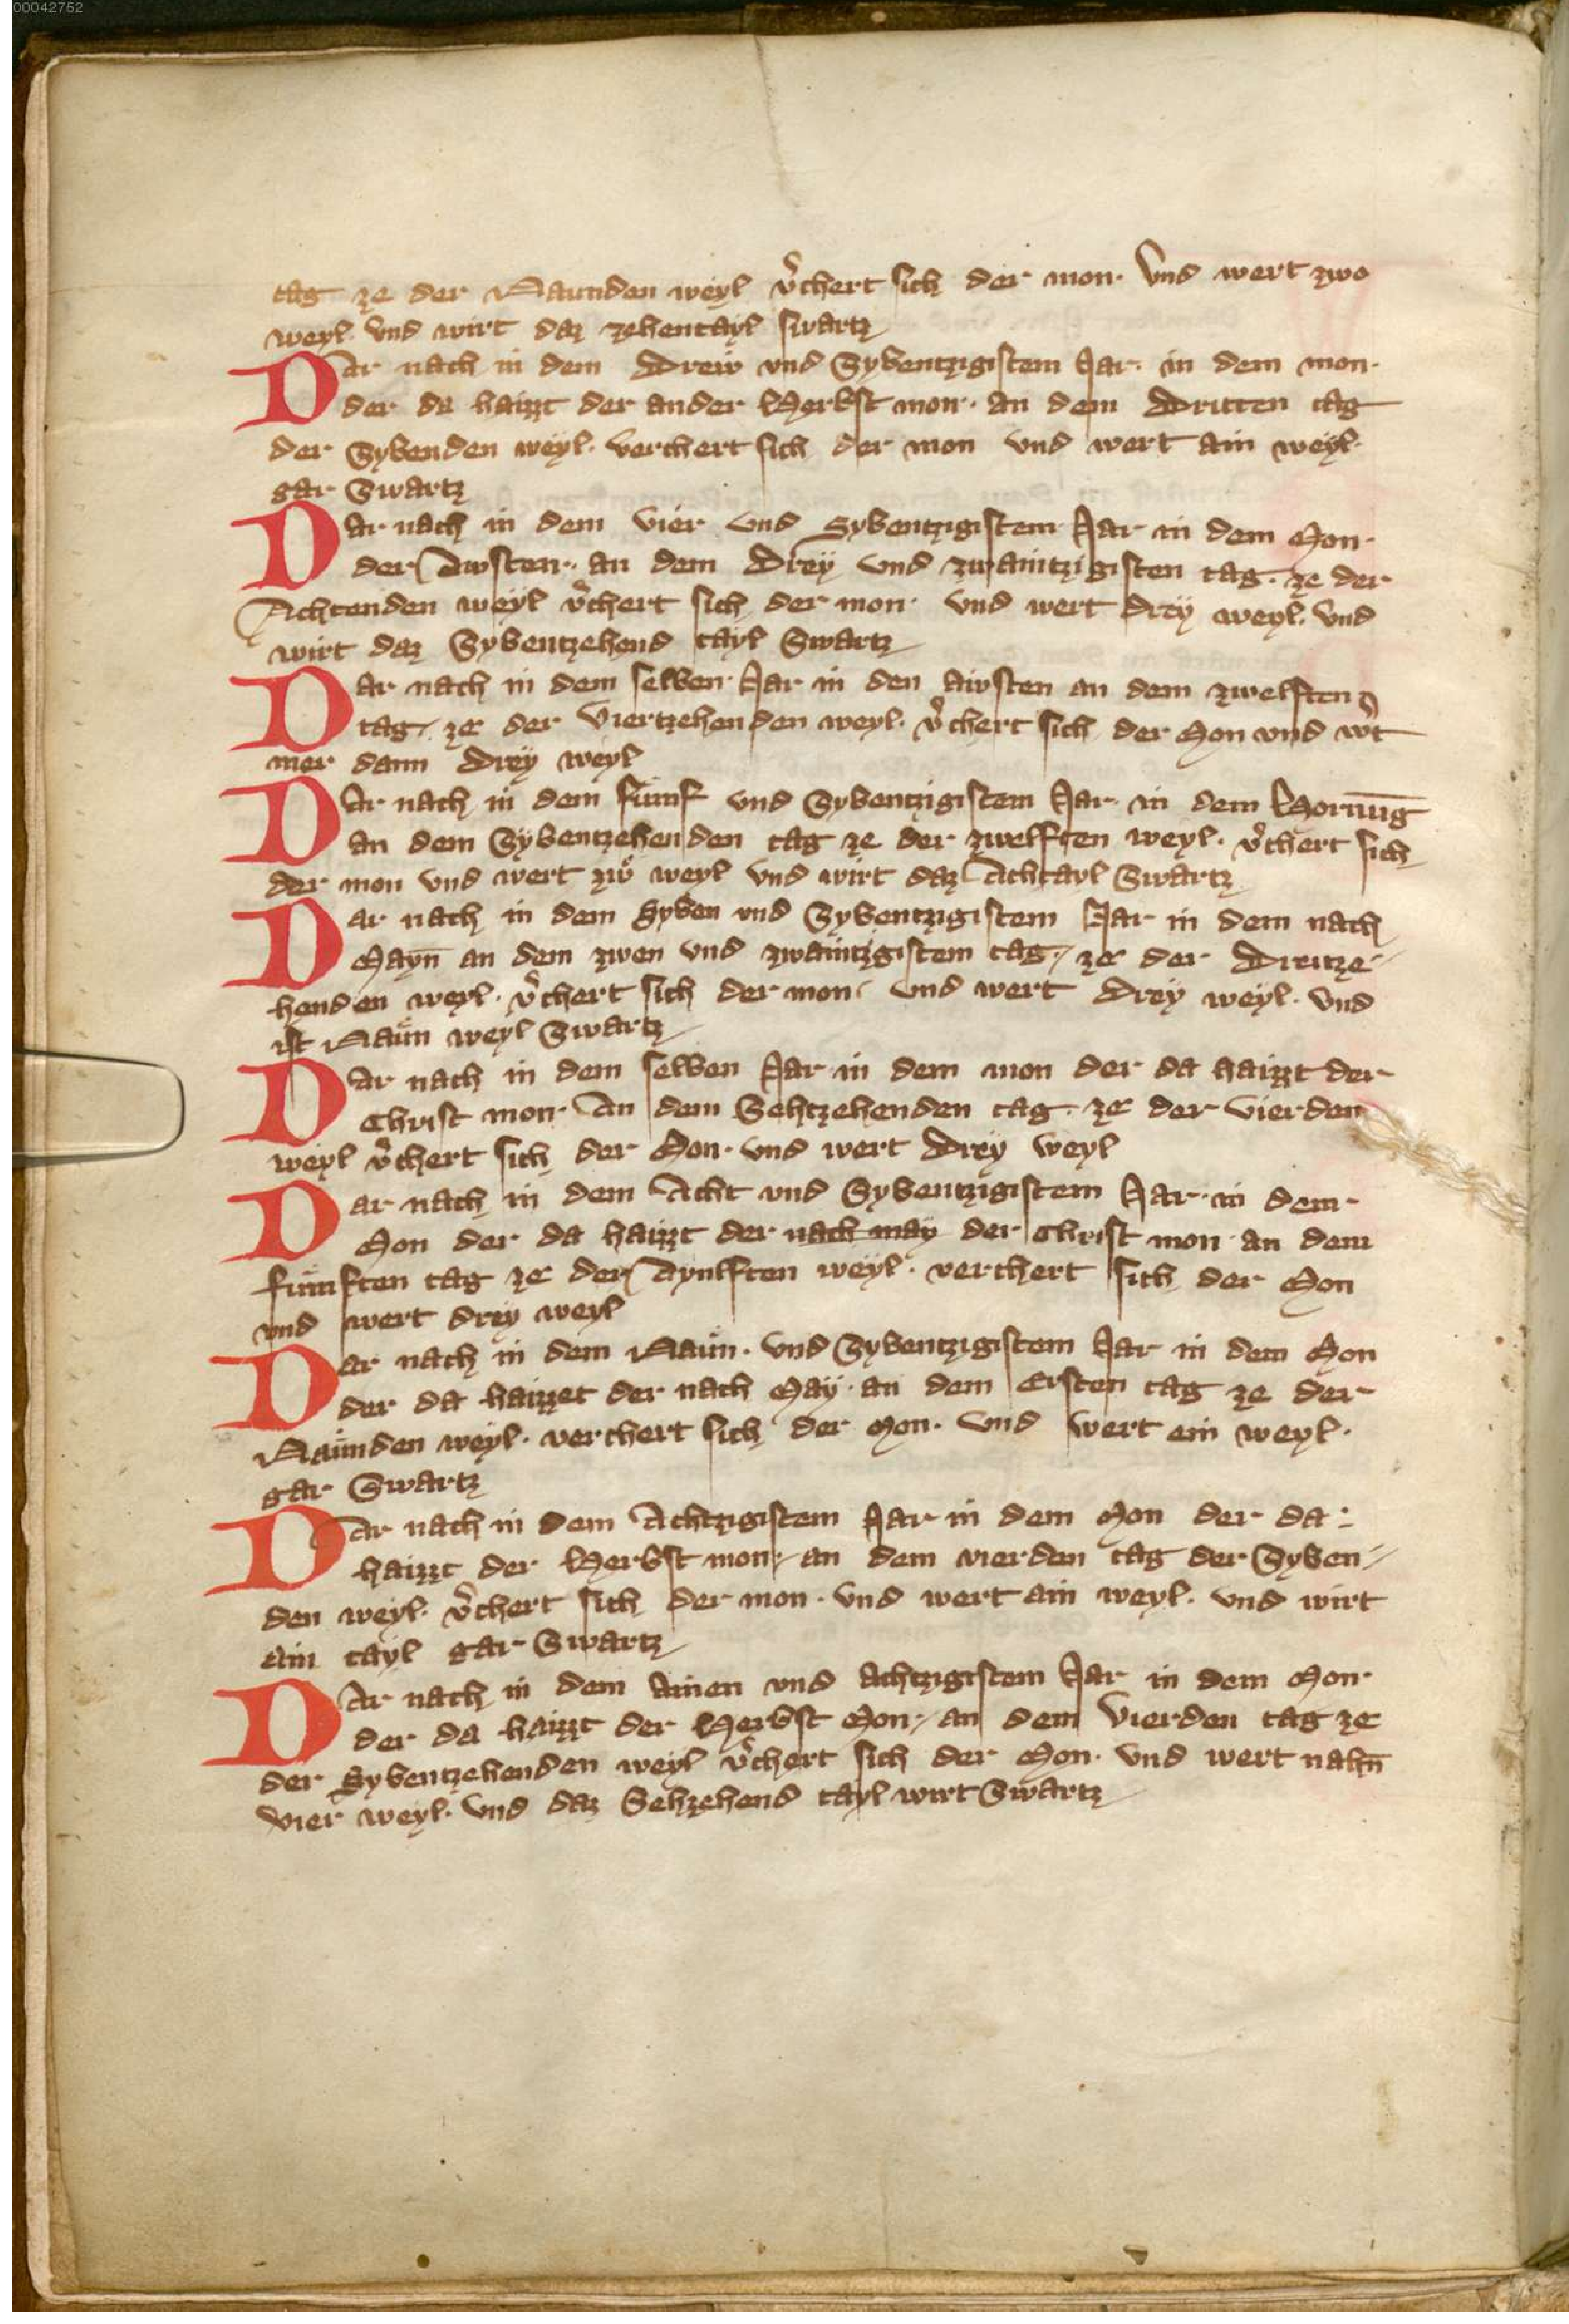 00042752
tag ze der Naunden weyl v̾chert sich der mon. Vnd wert zwo
weyl. vnd wirt daz zehentayl swartz
Dar nach in dem Dreẅ vnd Sybentzigistem Jar. in dem mon.
der da haizzt der ander Herbst mon. an dem Dritten tag
der Sybenden weyl. verchert sich der mon vnd wert ain weyl.
gar Swartz
Dar nach in dem vier vnd Sybentzigistem Jar in dem Mon.
der Austen. an dem Drey vnd zwaintzigisten tag. ze der
Achtenden weyl v̾chert sich der mon. vnd wert drey weyl. vnd
wirt daz Sybentzehend tayl Swartz
Dar nach in dem selben Jar in den austen an dem zwelften
tag. ze der Viertzehenden weyl. v̾chert sich der Mon vnd w̾t
mer dann Drey weyl
Dar nach in dem fünf vnd Sybentzigistem Jar. in dem Hornu̅g
an dem Sybentzehenden tag ze der zwelften weyl. v̾chert sich
der mon vnd wert zwo weyl vnd wirt daz Achtayl Swartz
Dar nach in dem Syben vnd Sybentzigistem Jar in dem nach
Mayn̅ an dem zwen vnd zwaintzigistem tag. ze der Dreitze-
henden weyl. v̾chert sich der mon. vnd wert Drey weyl. vnd
ist Naün weyl Swartz
Dar nach in dem selben Jar in dem mon der da haizzt der
Christ mon. An dem Sehtzehenden tag. ze der vierden
weyl v̾chert sich der Mon. vnd wert Drey weyl
Dar nach in dem Acht vnd Sybentzigistem Jar. in dem.
Mon der da haizzt der nach may der Christ mon an dem
fünften tag ze der Aynlften weyl. verchert sich der Mon
vnd wert drey weyl
Dar nach in dem Naün. vnd Sybentzigistem Jar in dem Mon
der da haizzet der nach May. an dem Ersten tag ze der
Naünden weyl. verchert sich der Mon. vnd wert ein weyl.
gar Swartz
Dar nach in dem Achtzigistem Jar in dem Mon der da:
haizzt der Herbst mon. an dem vierden tag der Syben-
den weyl. v̾chert sich der mon. vnd wert ain weyl. vnd wirt
ain tayl gar Swartz
Dar nach in dem ainen vnd achtzigistem Jar in dem Mon.
der da haizzt der Herbst Mon. an dem Vierden tag ze
der Sybentzehenden weyl v̾chert sich der Mon. vnd wert nahn̅
vier weyl. vnd daz Sehzehend tayl wirt Swartz